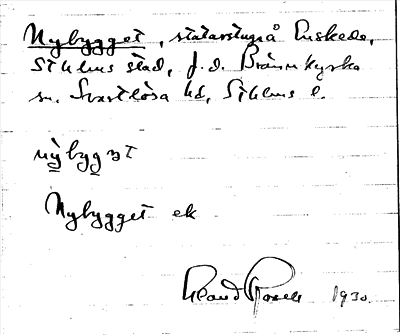 Nybygget, statarstuga å Enskede,
Sthlms stad, f.d. Brännkyrka
sn. Svartlösa hd, Sthlms l.
nỳbyg̲ət
Nybygget ek
1930.